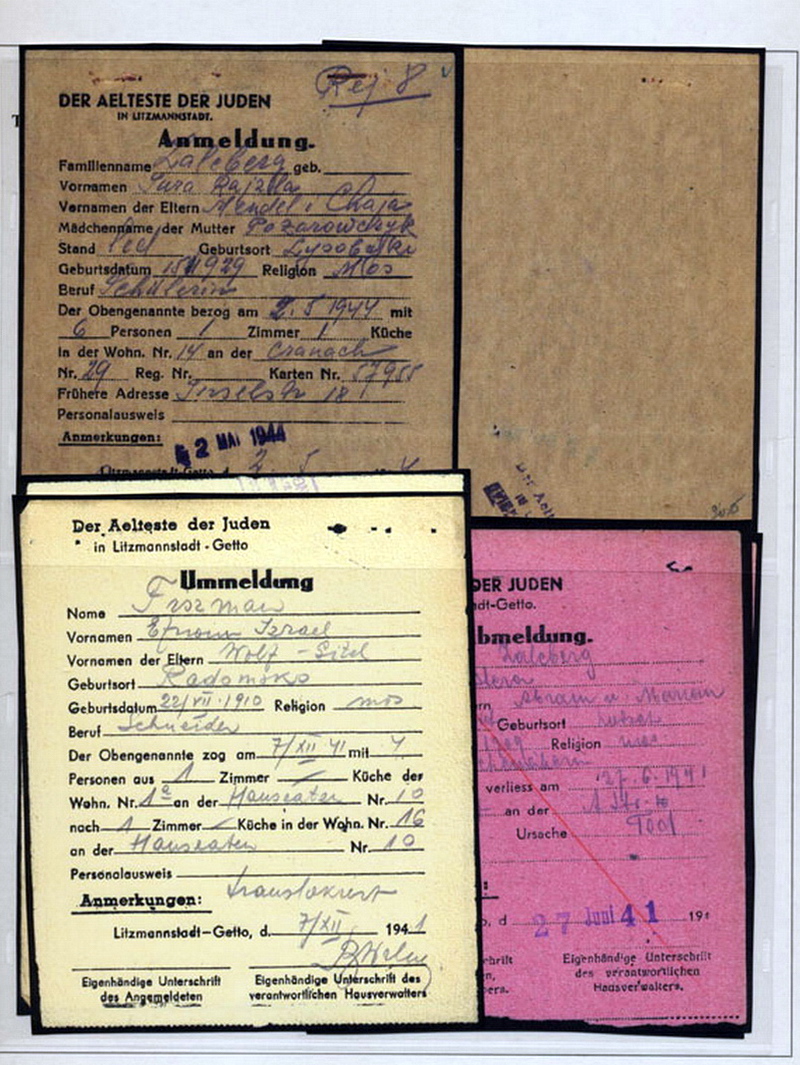 Rej. 8
DER AELTESTE DER JUDEN
IN LITZMANNSTADT.
Anmeldung.
Familienname Zalcberg geb.
Vornamen Sura Rajzla
Vornamen der Eltern Mendel i Chaja
Mädchenname der Mutter Pozarowczyk
Stand led Geburtsort Lysobatki
Geburtsdatum 1929 Religion Mos
Beruf Schülerin
Der Obengenannte bezog am 2.5 1944 mit
6 Personen 1 Zimmer 1 Küche
in der Wohn. Nr. 14 an der Cranach
Nr. 29 Reg. Nr. Karten Nr. 57955
Frühere Adresse Inselstr 18
Personalausweis
Anmerkungen:
2 MAI 1944
2. 5
Der Aelteste der Juden
in Litzmannstadt-Getto
Ummeldung
Name
Vornamen Israel
Vornamen der Eltern Wolf - Gitel
Geburtsort Radomsko
Geburtsdatum 22/VII.1910 Religion mos
Beruf Schneider
Der Obengenannte zog am 7/XII 41 mit 4
Personen aus 1 Zimmer Küche der
Wohn. Nr. 1a an der Hanseaten Nr. 10
nach 1 Zimmer Küche in der Wohn. Nr. 16
an der Hanseaten Nr. 10
Personalausweis
Anmerkungen: translokiert
Litzmannstadt-Getto, d. 7/XII 1941
Eigenhändige Unterschrift des Angemeldeten
Eigenhändige Unterschrift des verantwortlichen Hausverwalters
DER JUDEN
dt-Getto.
bmeldung.
Zalcberg
Abram u. Mariem
Geburtsort
Religion mos
verliess am 27.6.1941
an der
Ursache Tod
27 Juni 41 194
Eigenhändige Unterschrift
des verantwortlichen
Hausverwalters.